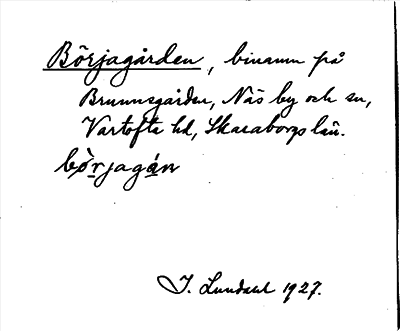 Börjagården, binamn på
Brunnsgården, Näs by och sn,
Vartofta hd, Skaraborgs län.
bö̀rjagán
I. Lundahl 1927.